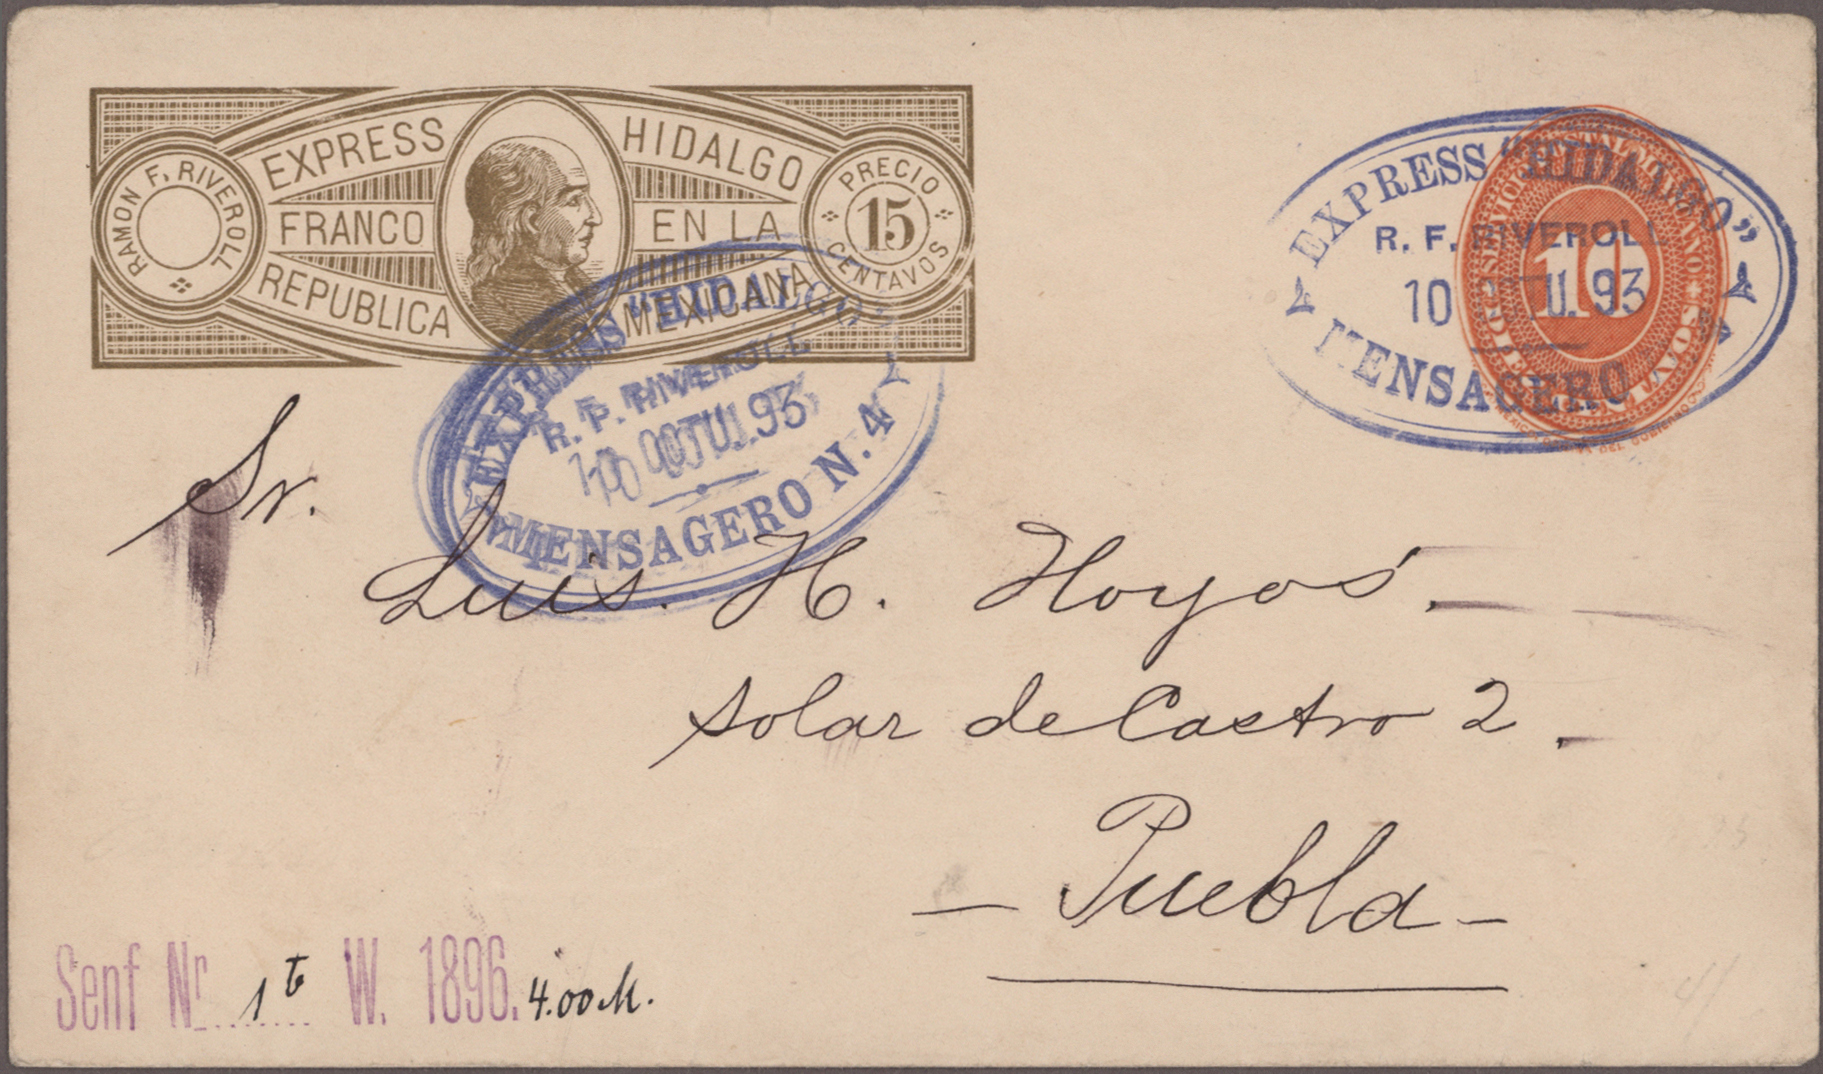 EXPRESS HIDALGO
FRANCO EN LA
REPUBLICA MEXICANA
RAMON F. RIVEROLL
PRECIO
15
CENTAVOS
EXPRESS "HIDALGO"
R. F. RIVEROLL
10 OCTU. 93
MENSAGERO
10
EXPRESS "HIDALGO"
R. F. RIVEROLL
10 OCTU. 93
MENSAGERO N. 4
Sr.
Luis. H. Hoyos.
Solar de Castro 2.
— Puebla —
Senf Nr. 1b W. 1896. 4.00 M.